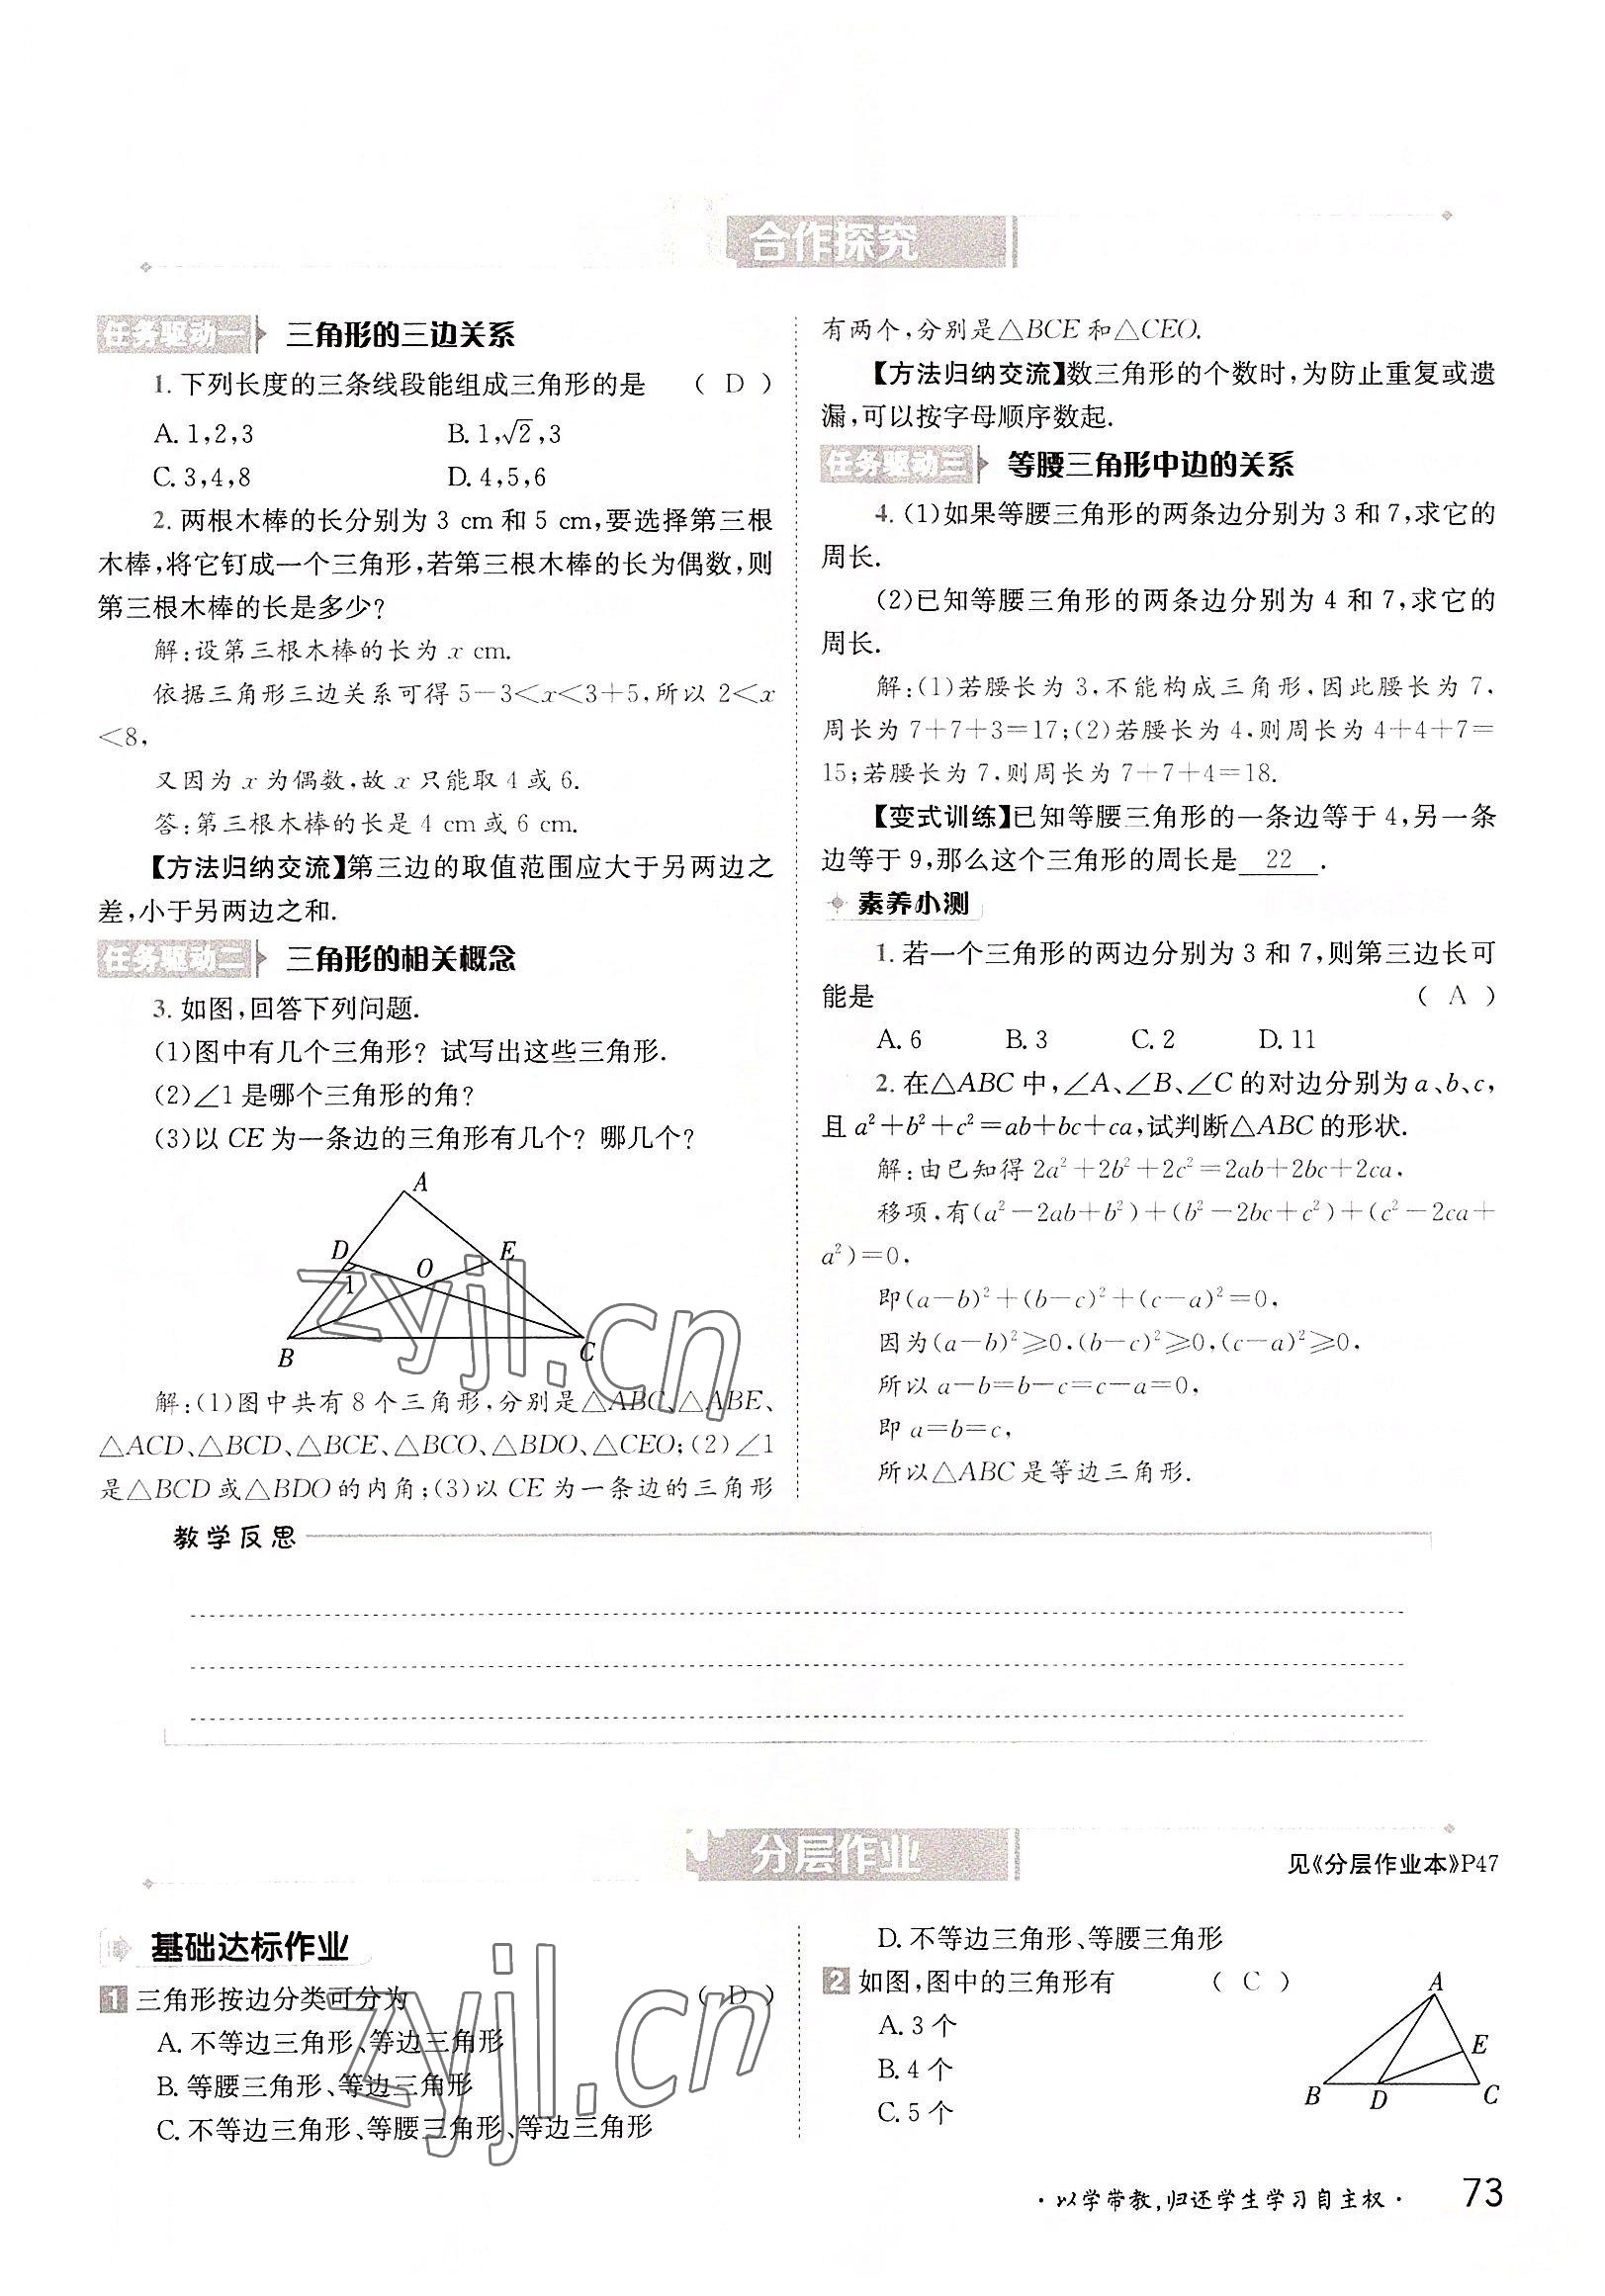 合作探究
任务驱动一 三角形的三边关系
1. 下列长度的三条线段能组成三角形的是 ( D )
A. 1,2,3 B. 1,√2,3
C. 3,4,8 D. 4,5,6
2. 两根木棒的长分别为 3 cm 和 5 cm,要选择第三根
木棒,将它钉成一个三角形,若第三根木棒的长为偶数,则
第三根木棒的长是多少?
解:设第三根木棒的长为 x cm.
依据三角形三边关系可得 5−3<x<3+5,所以 2<x
<8,
又因为 x 为偶数,故 x 只能取 4 或 6.
答:第三根木棒的长是 4 cm 或 6 cm.
【方法归纳交流】第三边的取值范围应大于另两边之
差,小于另两边之和.
任务驱动二 三角形的相关概念
3. 如图,回答下列问题.
(1)图中有几个三角形? 试写出这些三角形.
(2)∠1 是哪个三角形的角?
(3)以 CE 为一条边的三角形有几个? 哪几个?
A
D
E
O
1
B
C
解:(1)图中共有 8 个三角形,分别是△ABC、△ABE、
△ACD、△BCD、△BCE、△BCO、△BDO、△CEO;(2)∠1
是△BCD 或△BDO 的内角;(3)以 CE 为一条边的三角形
有两个,分别是△BCE 和△CEO.
【方法归纳交流】数三角形的个数时,为防止重复或遗
漏,可以按字母顺序数起.
任务驱动三 等腰三角形中边的关系
4. (1)如果等腰三角形的两条边分别为 3 和 7,求它的
周长.
(2)已知等腰三角形的两条边分别为 4 和 7,求它的
周长.
解:(1)若腰长为 3,不能构成三角形,因此腰长为 7,
周长为 7+7+3=17;(2)若腰长为 4,则周长为 4+4+7=
15;若腰长为 7,则周长为 7+7+4=18.
【变式训练】已知等腰三角形的一条边等于 4,另一条
边等于 9,那么这个三角形的周长是 22 .
素养小测
1. 若一个三角形的两边分别为 3 和 7,则第三边长可
能是 ( A )
A. 6 B. 3 C. 2 D. 11
2. 在△ABC 中,∠A、∠B、∠C 的对边分别为 a、b、c,
且 a²+b²+c²=ab+bc+ca,试判断△ABC 的形状.
解:由已知得 2a²+2b²+2c²=2ab+2bc+2ca,
移项,有(a²−2ab+b²)+(b²−2bc+c²)+(c²−2ca+
a²)=0,
即(a−b)²+(b−c)²+(c−a)²=0,
因为(a−b)²≥0,(b−c)²≥0,(c−a)²≥0,
所以 a−b=b−c=c−a=0,
即 a=b=c,
所以△ABC 是等边三角形.
教学反思
分层作业
见《分层作业本》P47
基础达标作业
1 三角形按边分类可分为 ( D )
A. 不等边三角形、等边三角形
B. 等腰三角形、等边三角形
C. 不等边三角形、等腰三角形、等边三角形
D. 不等边三角形、等腰三角形
2 如图,图中的三角形有 ( C )
A. 3 个
B. 4 个
C. 5 个
A
E
B
D
C
· 以学带教,归还学生学习自主权 · 73
zyjl.cn
zyjl.cn